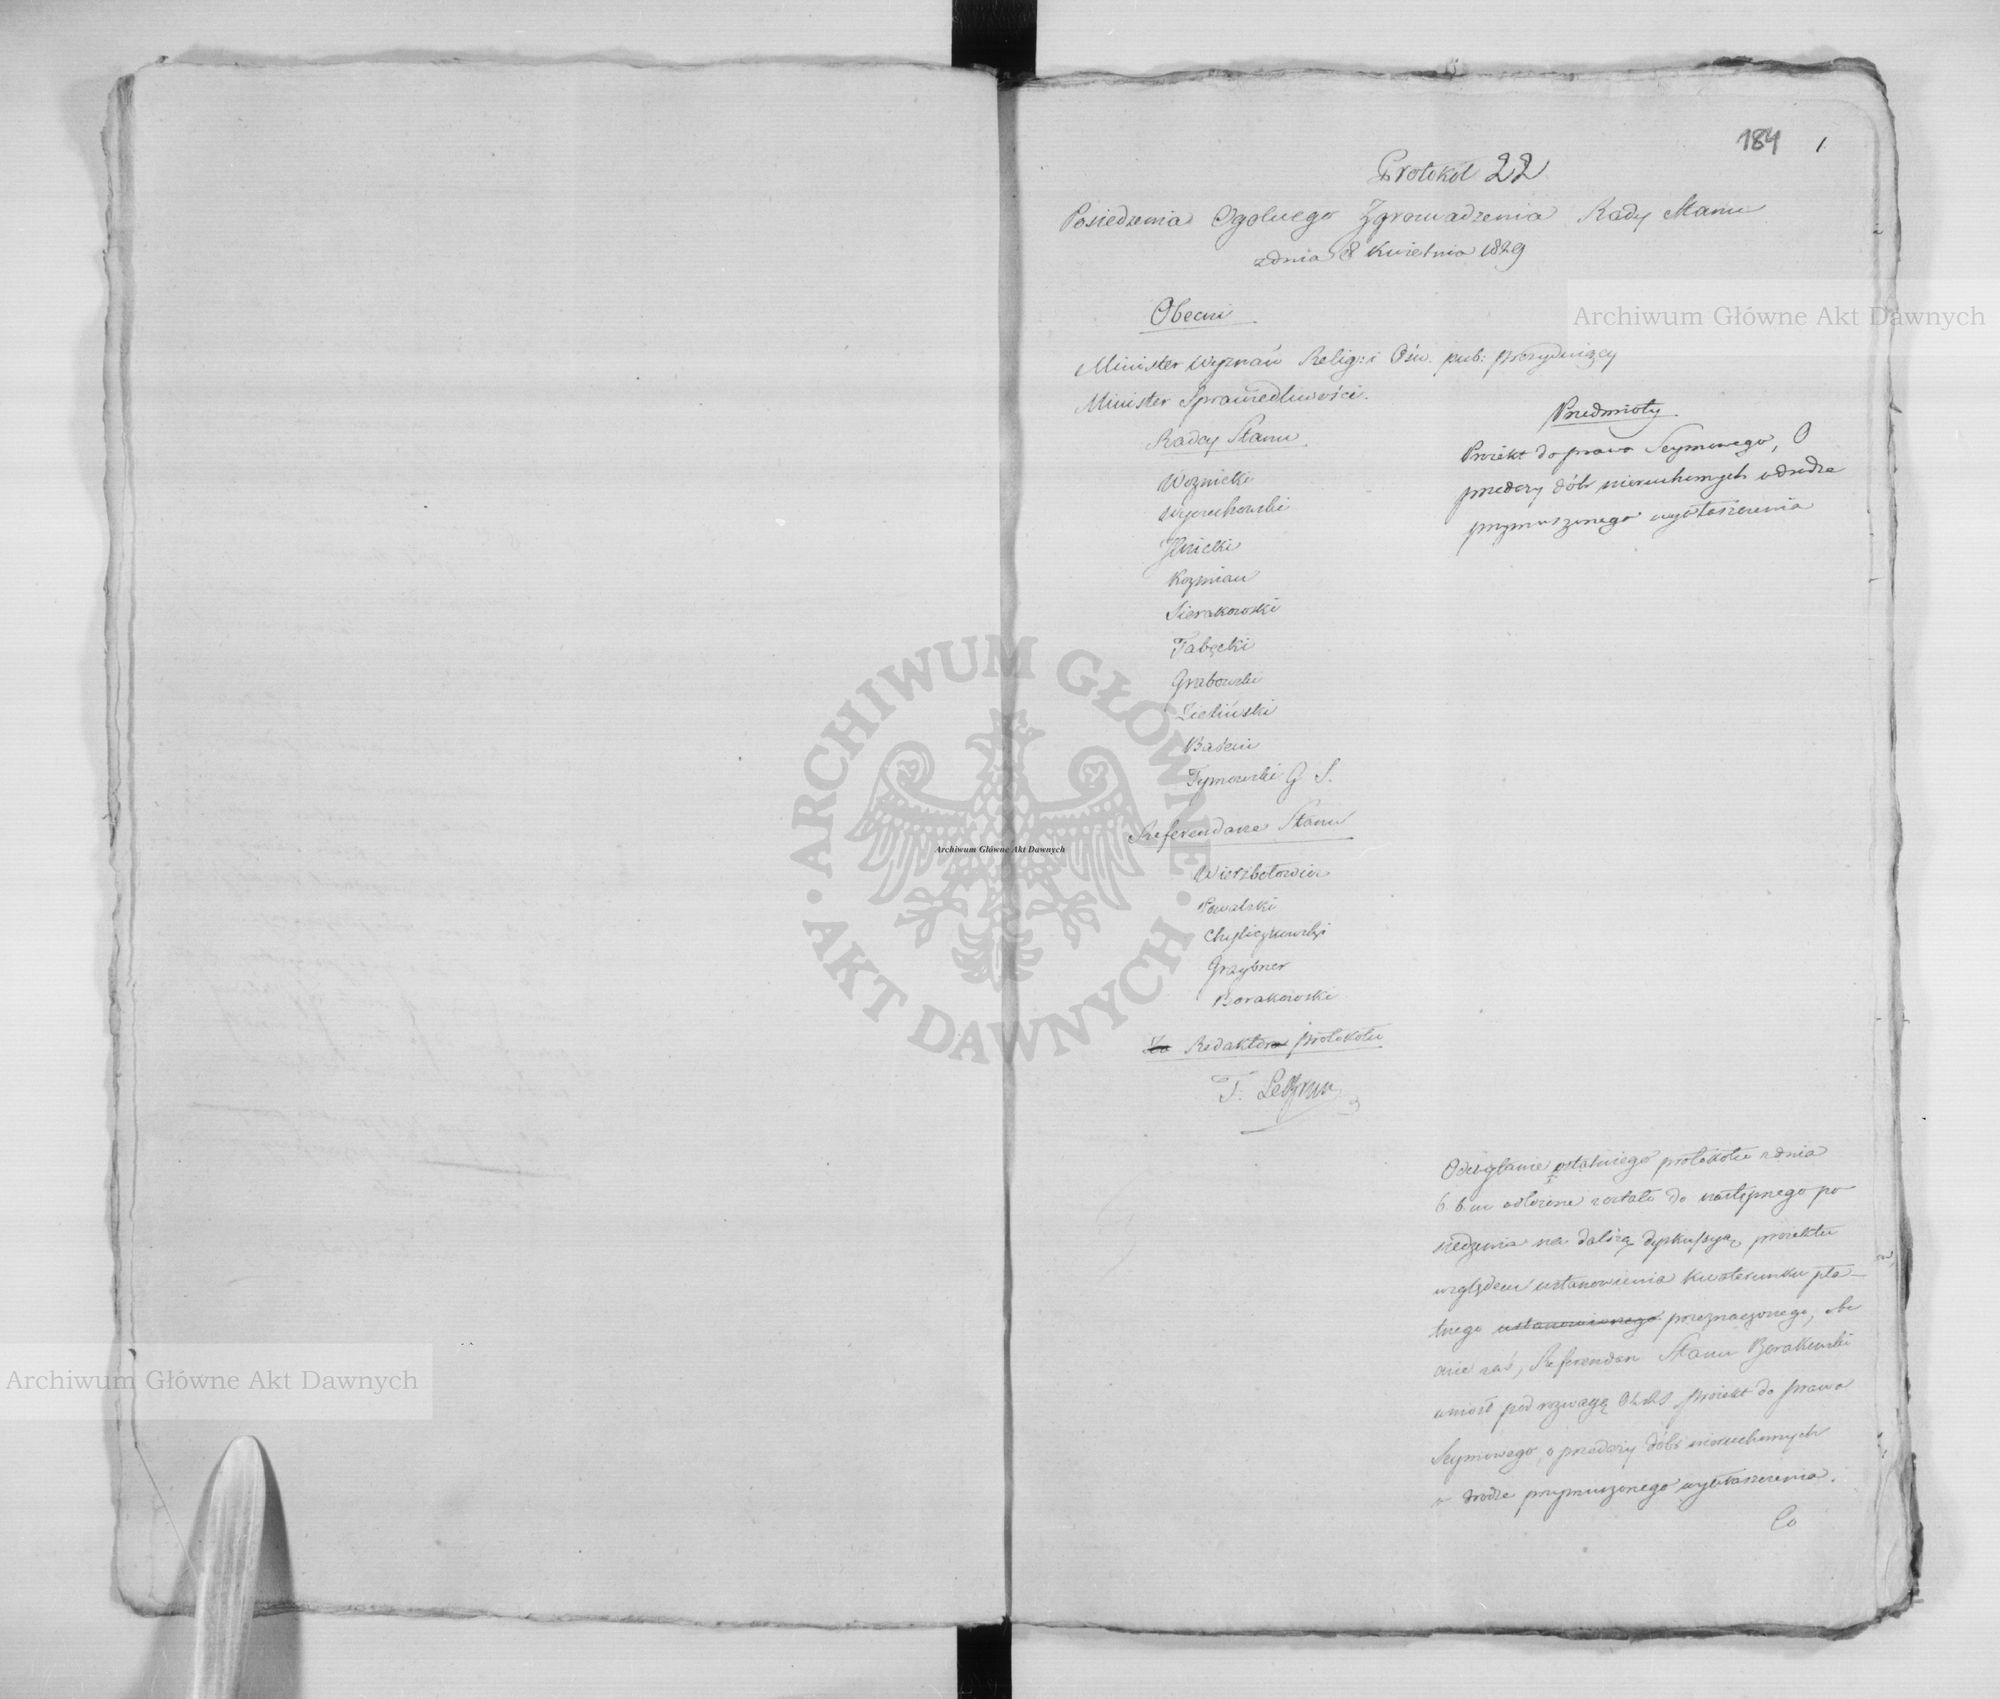 184 1
Protokół 22
Posiedzenia Ogolnego Zgromadzenia Rady Stanu
z dnia 8 Kwietnia 1829
Obecni
Minister Wyznań Relig: i Ośw. pub: prezyduiący
Minister Sprawiedliwości.
Radcy Stanu
Woznicki
Wyczechowski
Kozmian
Sierakowski
Tabęcki
Grabowski
Zieliński
Tymowski G. S.
Referendarze Stanu
Wierzbołowicz
Kowalski
Chyliczkowski
Grzybner
Borakowski
Za Redaktora protokołu
T. LeBrun
Przedmioty
Proiekt do prawa Seymowego, O
przedaży dóbr nieruchomych w drodze
przymuszonego wywłaszczenia
Odczytanie ostatniego protokółu z dnia
6. b. m odłożone zostało do następnego po
siedzenia na dalszą dyskussyą proiektu
względem ustanowienia kwaterunku pła-
tnego ustanowionego przeznaczonego, obe
cnie zaś, Referendarz Stanu Borakowski
wniósł pod rozwagę proiekt do prawa
Seymowego, o przedaży dóbr nieruchomych
w drodze przymuszonego wywłaszczenia.
Co
Archiwum Główne Akt Dawnych
Archiwum Główne Akt Dawnych
Archiwum Główne Akt Dawnych
ARCHIWUM GŁÓWNE · AKT DAWNYCH ·